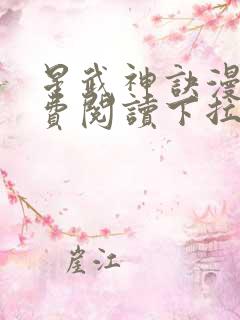 星武神訣漫
費閱讀下拉
崖江